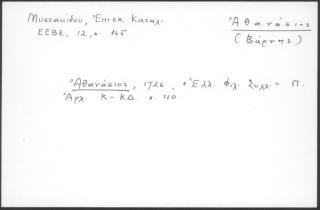 Μυστακίδου, Ἐπισκ. Καταλ.
ΕΕΒΣ, 12, σ. 165
Ἀθανάσιος
(Βάρνης)
Ἀθανάσιος, 1726, Ἑλλ. Φιλ. Συλλ. Π.
Ἀρχ. Κ-ΚΔ. σ. 110.